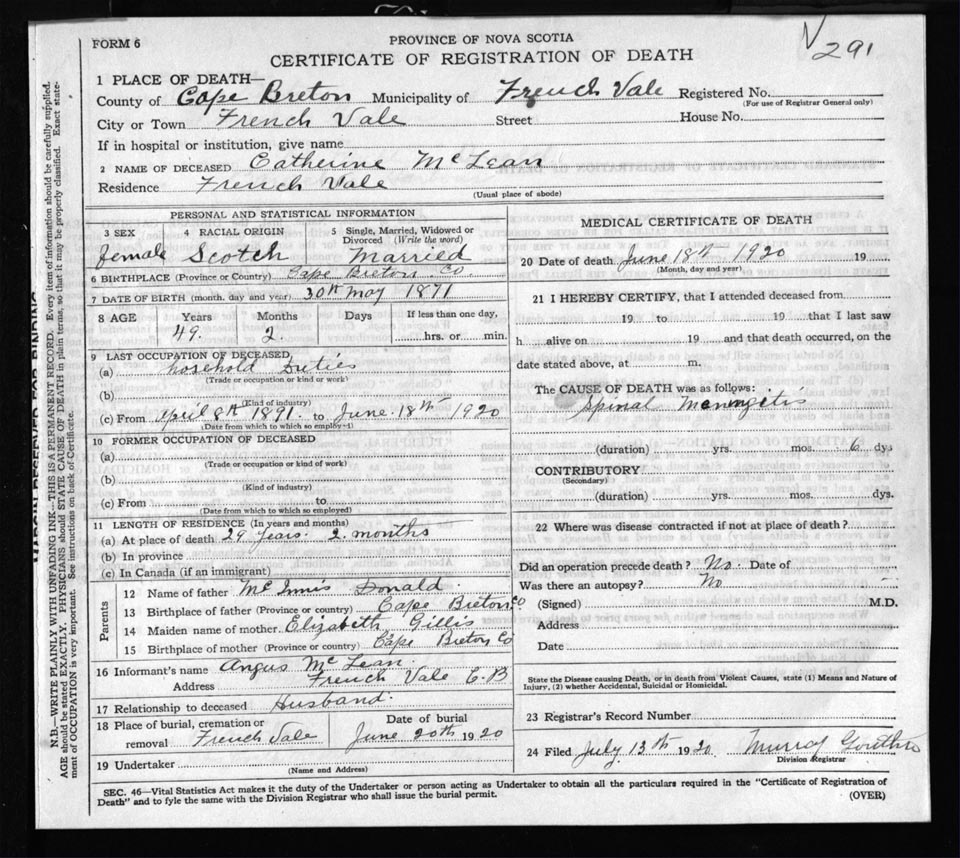 FORM 6
PROVINCE OF NOVA SCOTIA
CERTIFICATE OF REGISTRATION OF DEATH
V 291
1 PLACE OF DEATH—
County of Cape Breton Municipality of French Vale Registered No.
(For use of Registrar General only)
City or Town French Vale Street House No.
If in hospital or institution, give name
2 NAME OF DECEASED Catherine Mc Lean
Residence French Vale
(Usual place of abode)
PERSONAL AND STATISTICAL INFORMATION
3 SEX 4 RACIAL ORIGIN 5 Single, Married, Widowed or Divorced (Write the word)
female Scotch Married
6 BIRTHPLACE (Province or Country) Cape Breton Co.
7 DATE OF BIRTH (month, day and year) 30th May 1871
8 AGE Years Months Days If less than one day,
49. 2. hrs. or min.
9 LAST OCCUPATION OF DECEASED
(a) hosehold Duties
(Trade or occupation or kind of work)
(b)
(Kind of industry)
(c) From April 8th 1891. to June. 18th 1920
(Date from which to which so employed)
10 FORMER OCCUPATION OF DECEASED
(a)
(Trade or occupation or kind of work)
(b)
(Kind of industry)
(c) From to
(Date from which to which so employed)
11 LENGTH OF RESIDENCE (In years and months)
(a) At place of death 29 years. 2. months
(b) In province
(c) In Canada (if an immigrant)
Parents
12 Name of father Mc Innis Donald.
13 Birthplace of father (Province or country) Cape Breton Co
14 Maiden name of mother Elizabeth Gillis
15 Birthplace of mother (Province or country) Cape Breton Co
16 Informant's name Angus Mc Lean
Address French Vale C.B
17 Relationship to deceased Husband.
18 Place of burial, cremation or Date of burial
removal French Vale June 20th 1920
19 Undertaker
(Name and Address)
MEDICAL CERTIFICATE OF DEATH
20 Date of death June 18th 1920 19
(Month, day and year)
21 I HEREBY CERTIFY, that I attended deceased from
19 to 19 that I last saw
h alive on 19 and that death occurred, on the
date stated above, at m.
The CAUSE OF DEATH was as follows:
Spinal Menngitis
(duration) yrs. mos. 6 dys
CONTRIBUTORY
(Secondary)
(duration) yrs. mos. dys.
22 Where was disease contracted if not at place of death?
Did an operation precede death? No. Date of
Was there an autopsy? No
(Signed) M.D.
Address
Date
State the Disease causing Death, or in death from Violent Causes, state (1) Means and Nature of Injury, (2) whether Accidental, Suicidal or Homicidal.
23 Registrar's Record Number
24 Filed July 13th 1920 Murray Gouthro
Division Registrar
SEC. 46—Vital Statistics Act makes it the duty of the Undertaker or person acting as Undertaker to obtain all the particulars required in the "Certificate of Registration of
Death" and to fyle the same with the Division Registrar who shall issue the burial permit. (OVER)
MARGIN RESERVED FOR BINDING
N.B.—WRITE PLAINLY WITH UNFADING INK—THIS IS A PERMANENT RECORD. Every item of information should be carefully supplied.
AGE should be stated EXACTLY. PHYSICIANS should STATE CAUSE OF DEATH in plain terms, so that it may be properly classified. Exact state-
ment of OCCUPATION is very important. See instructions on back of Certificate.